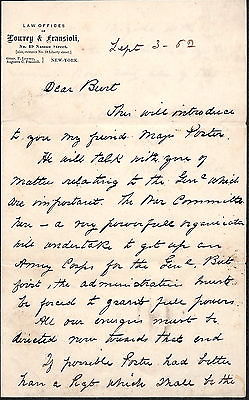 LAW OFFICES
OF
Lowrey & Fransioli,
No. 49 Nassau Street,
(also, entrance No. 18 Liberty street)
NEW-YORK.
Sept 3 - 62
Dear Burt
This will introduce
to you my friend Major Porter.
He will talk with you of
matters relating to the Genl. which
are important. The War Committee
here - a very powerfull organization
will undertake to get up an
Army Corps for the Genl. But
first, the administration must
be forced to grant full powers.
All our energies must be
directed now towards that end
If possible Porter had better
have a Rgt which shall be the